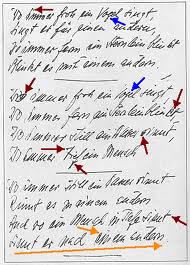 Wo immer froh ein Vogel singt,
singt er für einen andern.
Wo immer fern ein Sternlein blinkt
Blinkt es einem andern
Wo immer froh ein Vogel singt,
Wo immer fern ein Sternlein blinkt
Wo immer still ein Wasser rinnt,
Wo immer tief ein Mensch
Wo immer still ein Wasser rinnt
Rinnt es zu einem andern
Und wo ein Mensch in Tiefe sinnt
Sinnt er nach einem andern